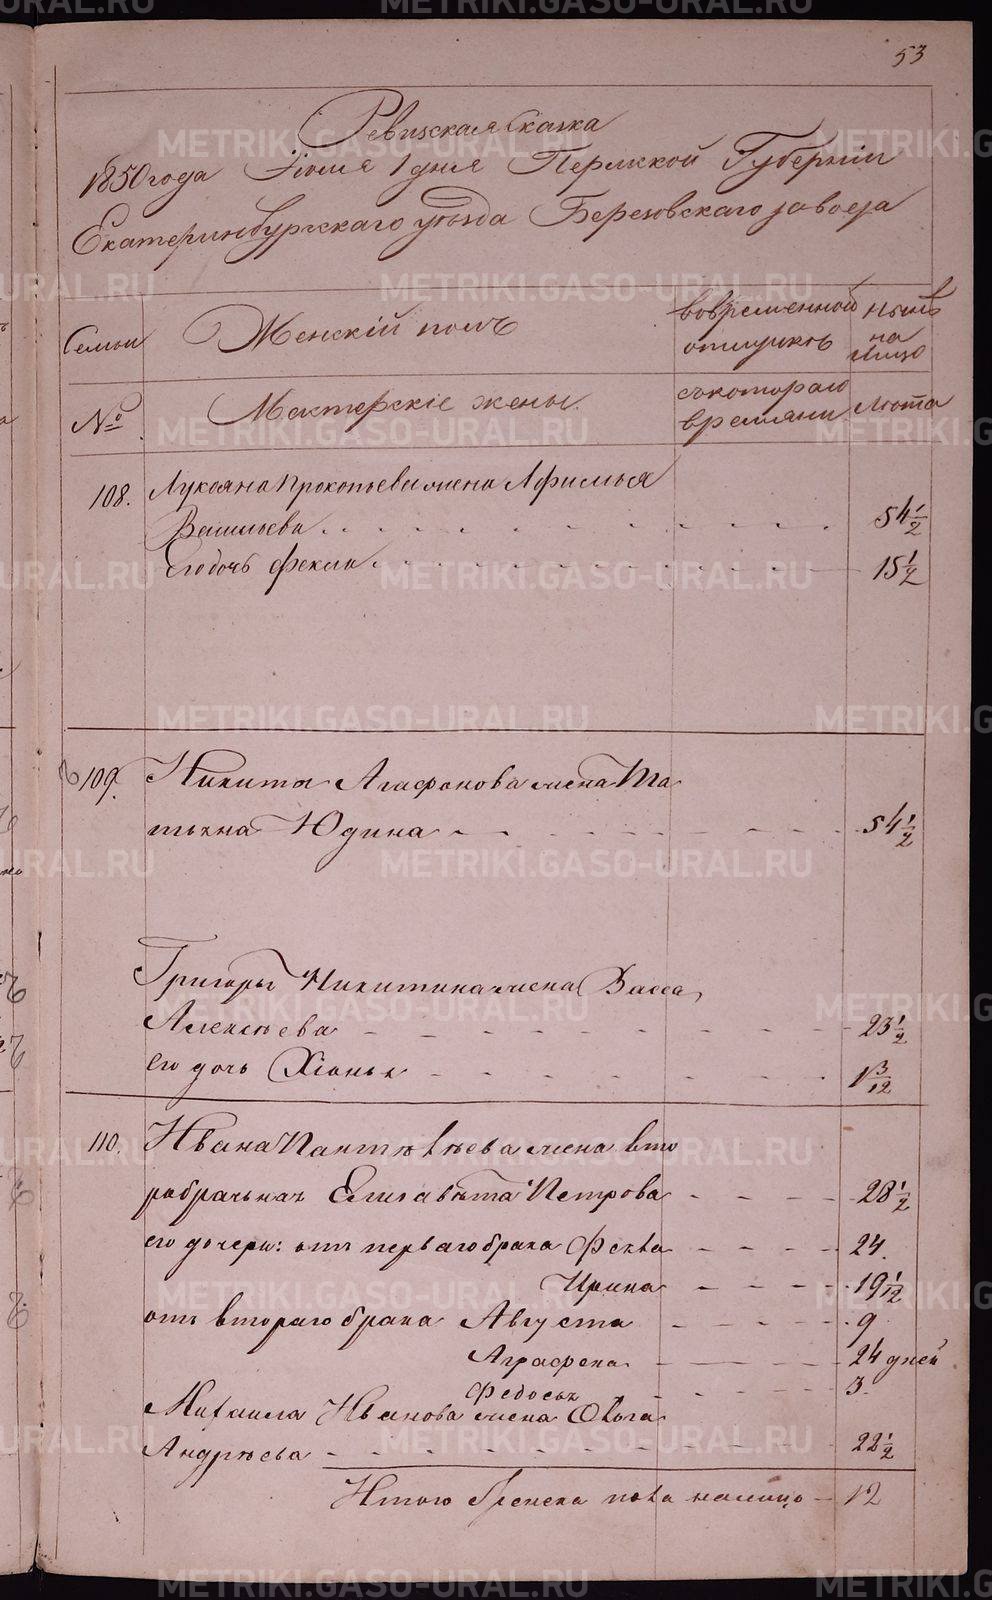 53
Ревизская Сказка
1850 года Июля 1 дня Пермской Губернiи
Екатеринбургскаго уѣзда Березовскаго завода
Семьи
Женскiй полъ
вовременной отлучкѣ
Нынѣ на лицо
№
Мастерскiе жены.
съкотораго времяни
Лѣта
108.
Лукояна Прокопьева жена Афимья
Васильева
54 1/2
Его дочь Фекла
15 1/2
109.
Никиты Агафонова жена Та
тьяна Юдина
54 1/2
Григорья Никитина жена Васса
Алексѣева
23 1/2
Его дочь Хiонья
1 3/12
110.
Ивана Пантѣлѣева жена вто
робрачьная Елисавѣта Петрова
28 1/2
его дочери: отъ перваго брака Фекла
24.
Ирина
19 1/12
отъ втораго брака Августа
9
Аграфена
24 дней
Федосья
3
Михаила Иванова жена Олга
Андрѣева
22 1/2
Итого Женска пола налицо
12
METRIKI.GASO-URAL.RU